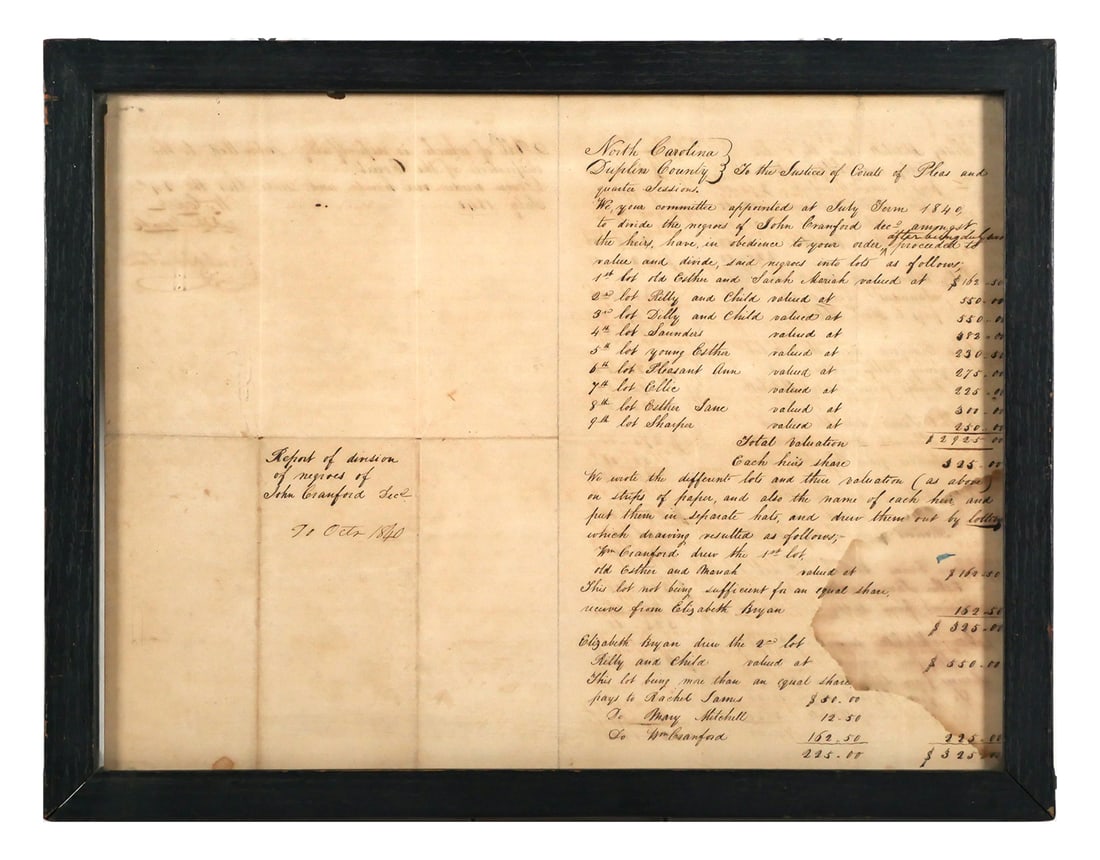 Report of division
of negroes of
John Cranford Decd
To Octr 1840
North Carolina
Duplin County } To the Justices of Courts of Pleas and
quarter Sessions.
We, your committee appointed at July Term 1840,
to divide the negroes of John Cranford decd. amongst
the heirs, have, in obedience to your order, after being duly proceeded to
value and divide, said negroes into lots as follows;
1st lot old Esther and Sarah Meriah valued at $162-50
2nd lot Rilly and Child valued at 550-00
3rd lot Dilly and Child valued at 550-00
4th lot Saunders valued at 382-00
5th lot young Esther valued at 230-50
6th lot Pleasant Ann valued at 275-00
7th lot Ellic valued at 225-00
8th lot Esther Jane valued at 300-00
9th lot Sharper valued at 250-00
Total valuation $2925-00
Each heirs share 325-00
We wrote the different lots and their valuation (as above)
on strips of paper, and also the name of each heir and
put them in separate hats, and drew them out by lottery
which drawing resulted as follows;-
Wm Cranford drew the 1st lot,
old Esther and Meriah valued at $162-50
This lot not being sufficient for an equal share,
receives from Elizabeth Bryan 162-50
$325-00
Elizabeth Bryan drew the 2nd lot
Rilly and Child valued at $550-00
This lot being more than an equal share
pays to Rachel James $50.00
Do Mary Mitchell 12-50
Do Wm Cranford 162-50 225-00
225-00 $325-00